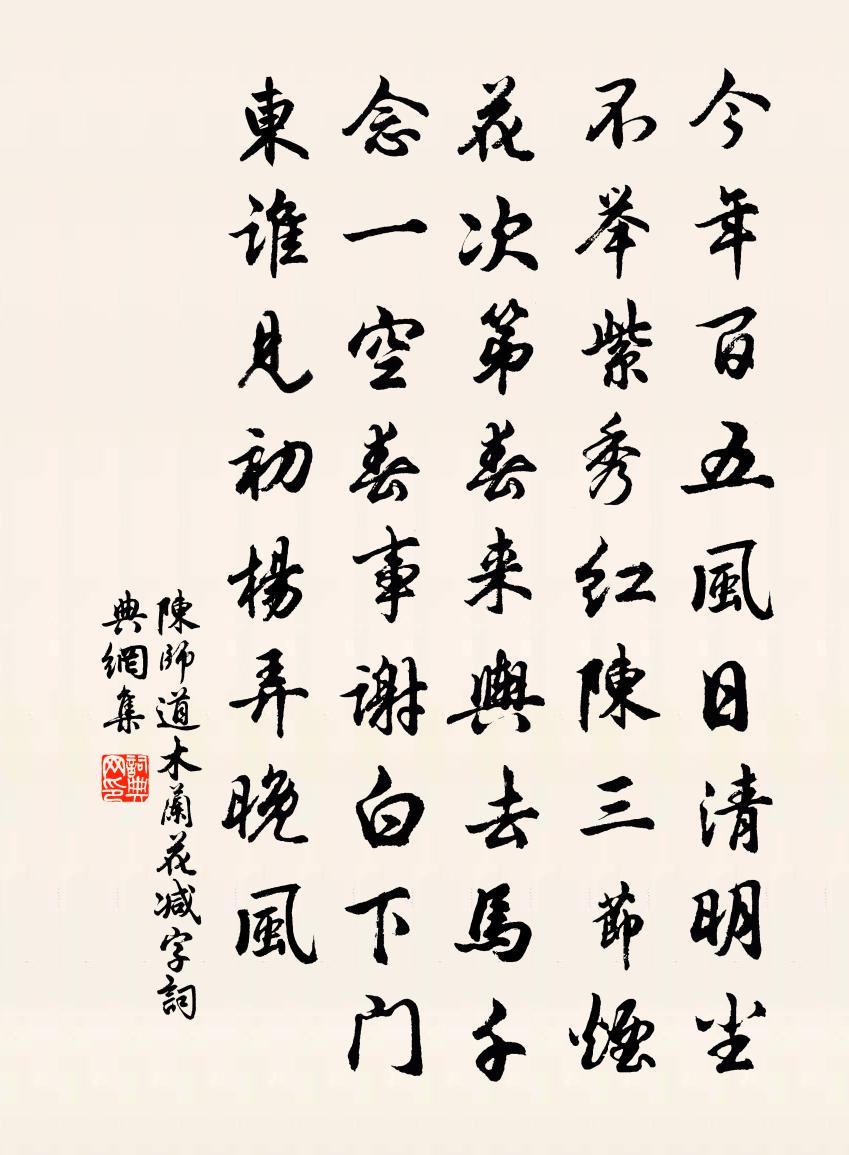 今年百五風日清明尘
不举紫秀红陳三節煙
花次第春来輿去馬千
念一空春事谢白下门
東谁見初楊弄晚風
陳師道木蘭花减字詞
典網集
詞典网印